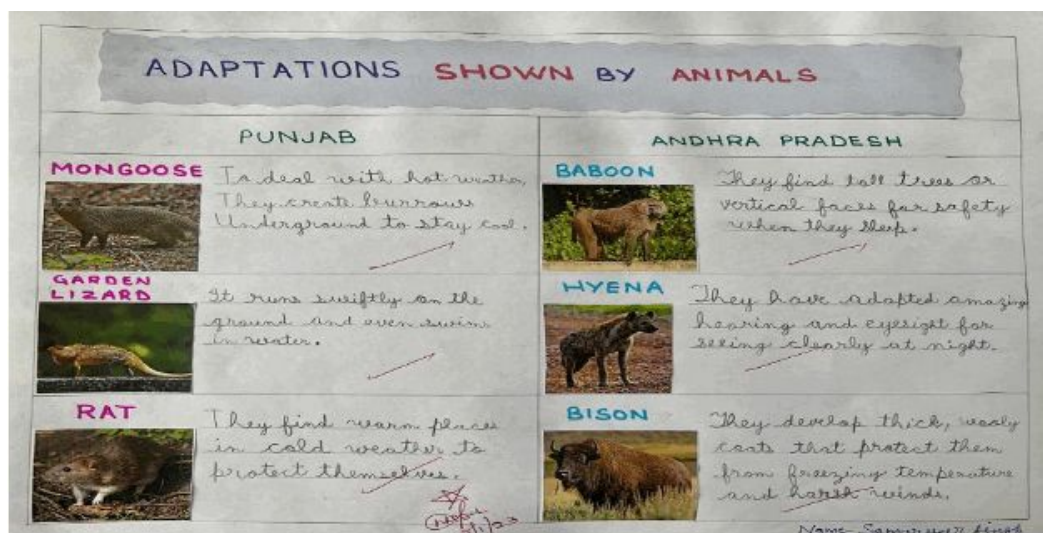 ADAPTATIONS SHOWN BY ANIMALS
PUNJAB
MONGOOSE
To deal with hot weather,
They create burrows
Underground to stay cool.
GARDEN
LIZARD
It runs swiftly on the
ground and even swims
in water.
RAT
They find warm places
in cold weather to
protect themselves.
ANDHRA PRADESH
BABOON
They find tall trees or
vertical faces for safety
when they sleep.
HYENA
They have adapted amazing
hearing and eyesight for
seeing clearly at night.
BISON
They develop thick, wooly
coats that protect them
from freezing temperature
and harsh winds.
Name Singh